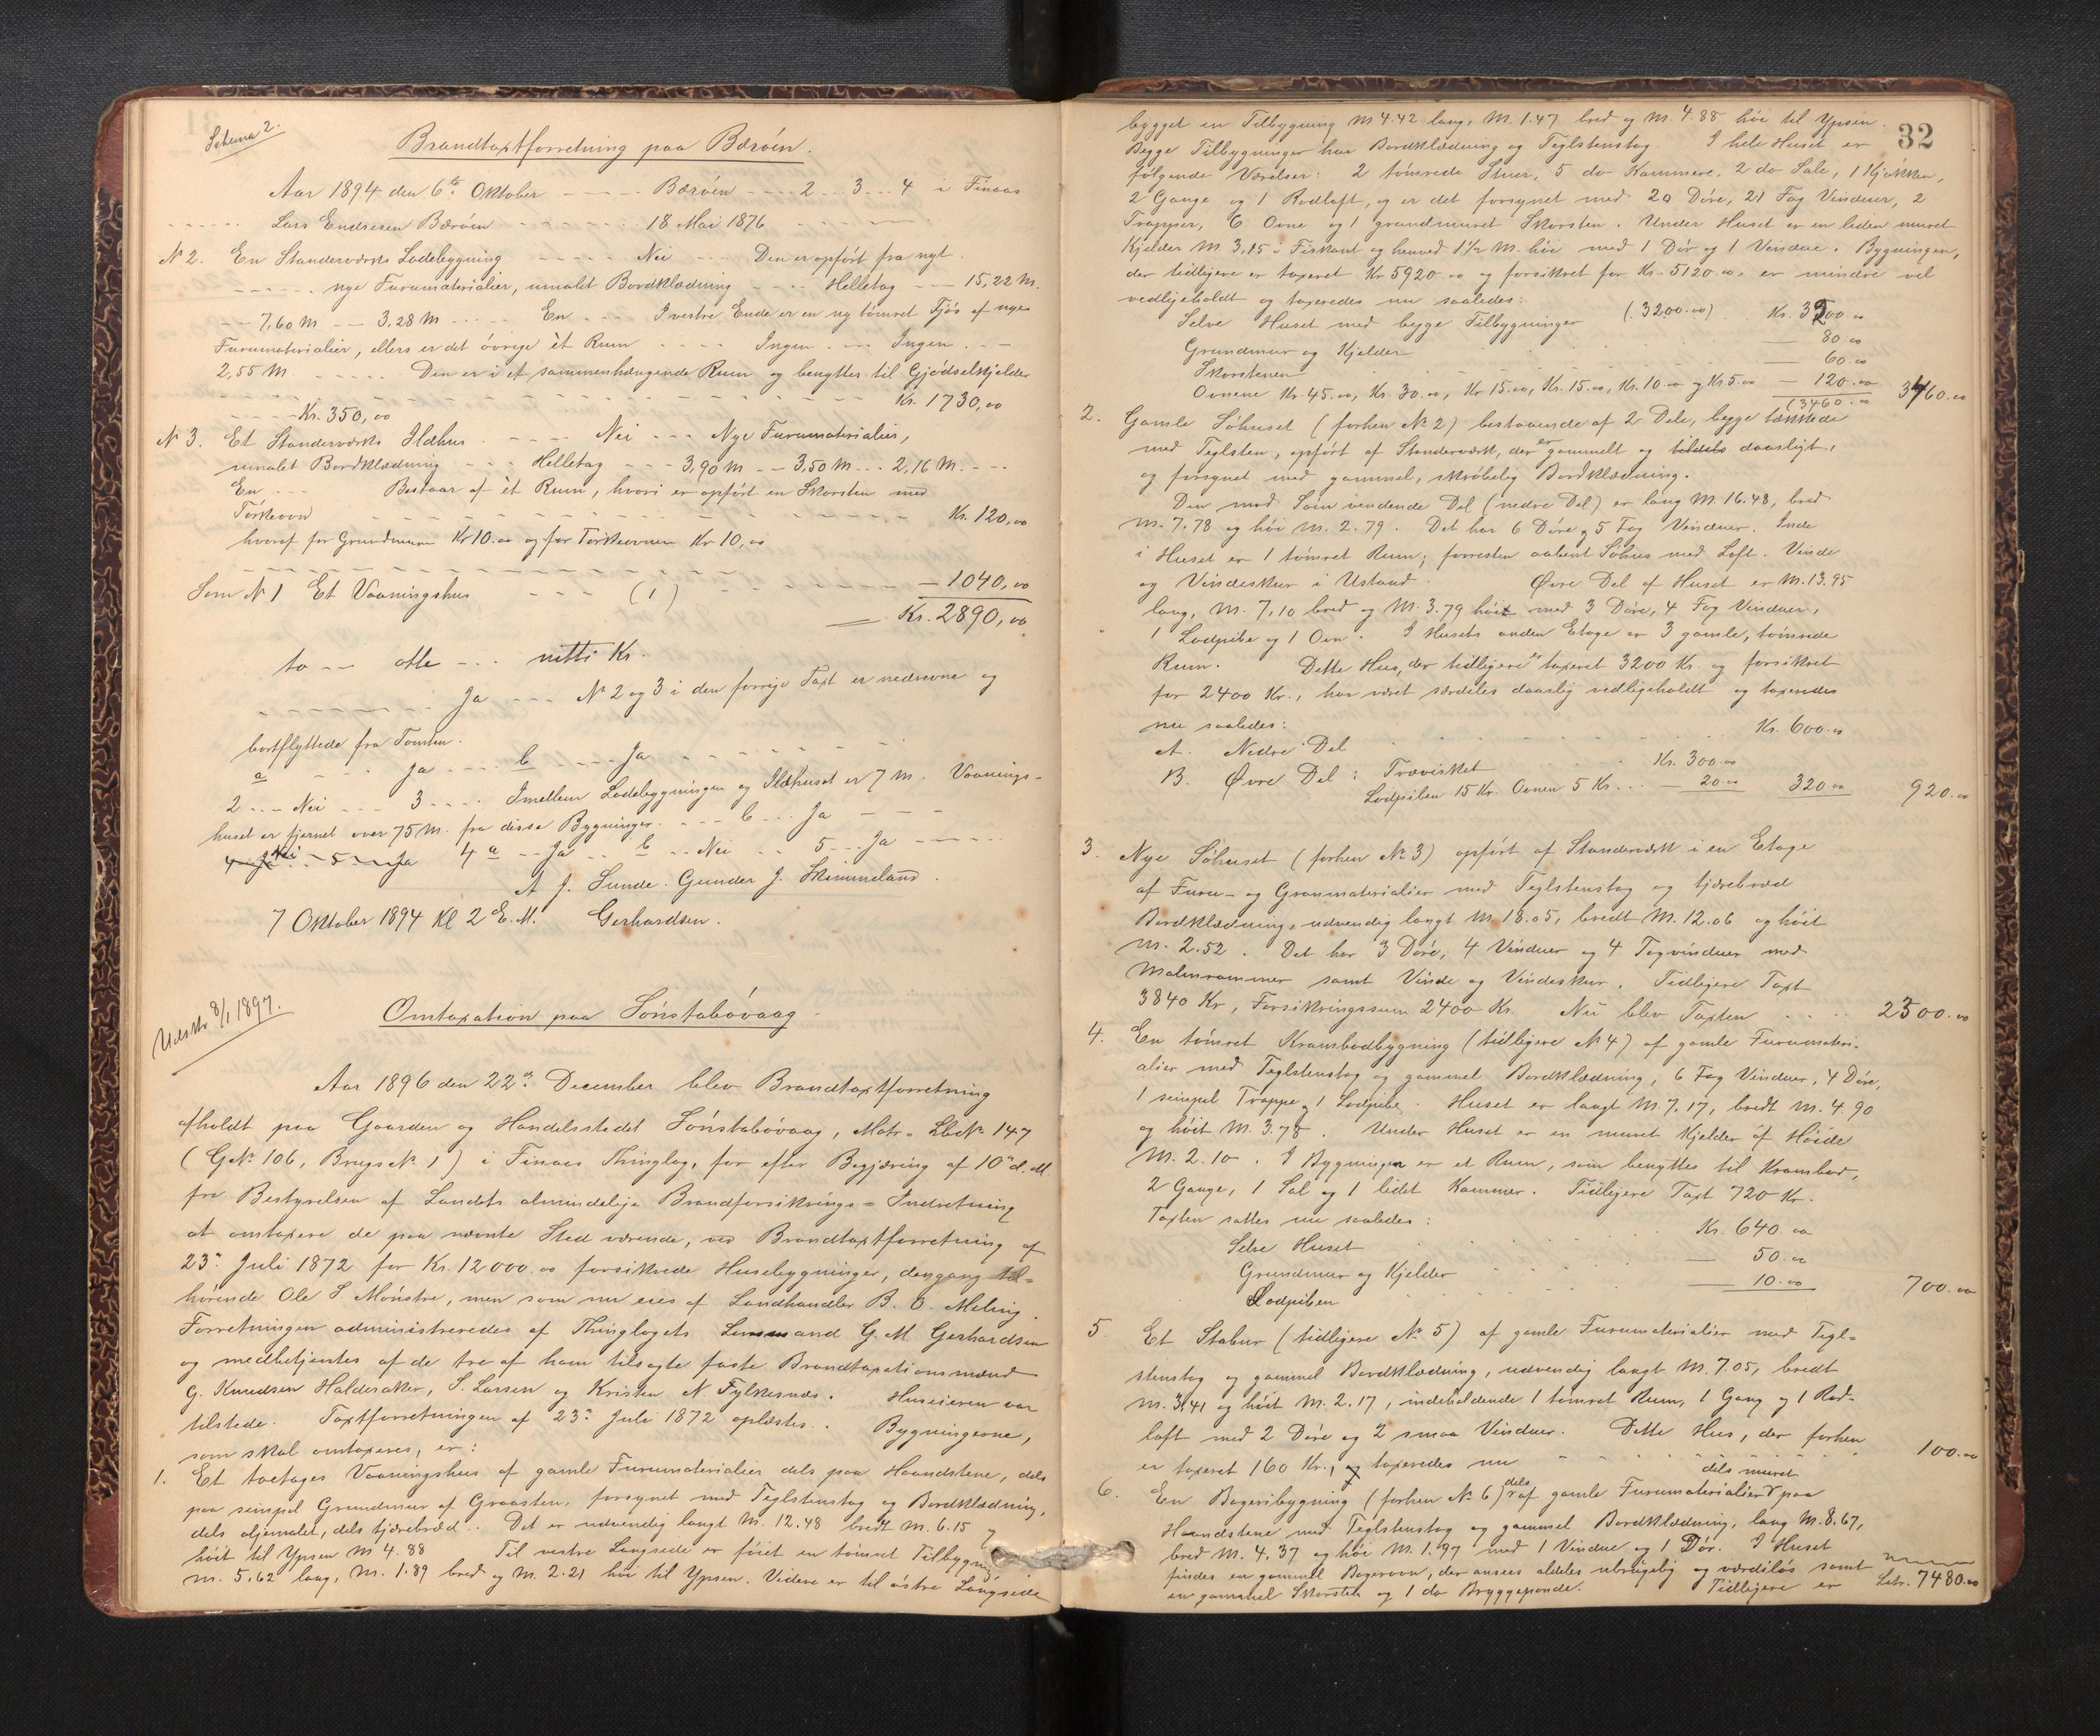 Schema 2.
Brandtaxtforretning paa Bærøen.
Aar 1894 den 6te Oktober - - - - Bærøen - - - 2 - - 3 - - 4 i Finaas
- - - - - Lars Endresen Bærøen - - - - - 18 Mai 1876 - - - - -
N 2. En Standerværks Ladebygning - - - - - Nei - - - Den er opført fra nyt.
- - - - - nye Furumaterialier, umalet Bordklædning - - - - Helletag - - - 15,22 M.
- - 7,60 M - - 3,28 M - - - - - En - - - I vestre Ende er en ny tømret Fjøs af nye
Furumaterialier, ellers er det øvrige èt Rum - - - - Ingen - - - Ingen - - -
2,55 M. - - - - - Den er i et sammenhængende Rum og benyttes til Gjødselkjelder
- - - - - - - - - - Kr. 1730,00
- - - Kr. 350,00
N 3. Et Standerværks Ildhus. - - - - Nei - - - Nye Furumaterialier,
umalet Bordklædning - - - Helletag - - - 3,90 M - - 3,50 M - - - 2,16 M. - - -
En - - - Bestaar af èt Rum, hvori er opført en Skorsten med
Tørkeovn - - - - - - - - - - Kr. 120,00
hvoraf for Grundmuren Kr 10.00 og for Tørkeovnen Kr 10,00
Som N 1 Et Vaaningshus - - - (1) - - - - - - — 1040,00
Kr. 2890,00
to - - - otte - - - nitti Kr.
- - - - - - Ja - - - N 2 og 3 i den forrige Taxt er nedrevne og
bortflyttede fra Tomten.
a - - - Ja - - - b - - - Ja - - - - -
2 - - - Nei - - - 3 - - - - Imellem Ladebygningen og Ildhuset er 7 M. Vaanings-
huset er fjernet over 75 M. fra disse Bygninger. - - - b - - - Ja - - -
4 a - - Ja - - b - - Nei - - 5 - - Ja - - - -
A J. Sunde. Gunder J. Skimmeland.
7 Oktober 1894 Kl 2 E.M. Gerhardsen.
Udskr. 8/1 1897.
Omtaxation paa Sønstabøvaag.
Aar 1896 den 22de December blev Brandtaxtforretning
afholdt paa Gaarden og Handelsstedet Sønstabøvaag, Matr. LbNr 147
(GNr. 106, BrugsNr. 1) i Finaas Thinglag, for efter Begjæring af 10de d.M
fra Bestyrelsen af Landets almindelige Brandforsikrings-Indretning
at omtaxere de paa nævnte Sted værende, ved Brandtaxtforretning af
23de Juli 1872 for Kr. 12000.00 forsikrede Husebygninger, dengang til-
hørende Ole S. Mønstre, men som nu eies af Landhandler B. O. Meling.
Forretningen administreredes af Thinglagets Lensmand G. M Gerhardsen
og medbetjentes af de tre af ham tilsagte faste Brandtaxationsmænd
G. Knudsen Halderaker, S. Larsen og Kristen N. Fylkesnæs. Huseieren var
tilstede. Taxtforretningen af 23de Juli 1872 oplæstes. Bygningerne,
som skal omtaxeres, er:
1. Et toetages Vaaningshus af gamle Furumaterialier dels paa Haandstene, dels
paa simpel Grundmur af Graasten, forsynet med Teglstenstag og Bordklædning,
dels oljemalet, dels tjærebræd. Det er udvendig langt M. 12.48 bredt M. 6.15 og
høit til Ypsen M 4.88 Til vestre Langside er føiet en tømret Tilbygning
M. 5.62 lang, M. 1.89 bred og M. 2.21 høi til Ypsen. Videre er til østre Langside
32
bygget en Tilbygning M 4.42 lang, M. 1.47 bred og M. 4.88 høi til Ypsen.
Begge Tilbygninger har Bordklædning og Teglstenstag. I hele Huset er
følgende Værelser: 2 tømrede Stuer, 5 do Kammere, 2 do Sale, 1 Kjøkken,
2 Gange og 1 Rodloft, og er det forsynet med 20 Døre, 21 Fag Vinduer, 2
Trapper, 6 Ovne og 1 grundmuret Skorsten. Under Huset er en liden muret
Kjelder M. 3,15 i Firkant og henved 1 1/2 M. høi med 1 Dør og 1 Vindue. Bygningen,
der tidligere er taxeret Kr 5920.00 og forsikret for Kr. 5120.00, er mindre vel
vedligeholdt og taxeredes nu saaledes:
Selve Huset med begge Tilbygninger (3200.00) Kr. 3200.00
Grundmur og Kjelder - - - — 80.00
Skorstenen - - - — 60.00
Ovnene Kr. 45.00, Kr. 30.00, Kr 15.00, Kr. 15.00, Kr. 10.00 og Kr 5.00 — 120.00 3460.00
(3460.00
2. Gamle Søhuset (forhen No 2) bestaaende af 2 Dele, begge tækkede
med Teglsten, opført af Standerværk, der er gammelt og tildels daarligt,
og forsynet med gammel, skrøbelig Bordklædning.
Den mod Søen vendende Del (nedre Del) er lang M. 16.48, bred
M. 7.78 og høi M. 2.79. Det har 6 Døre og 5 Fag Vinduer. Inde
i Huset er 1 tømret Rum; forresten aabent Søhus med Loft. Vinde
og Vindeskur i Ustand. Øvre Del af Huset er M. 13.95
lang, M. 7.10 bred og M. 3.79 høi med 3 Døre, 4 Fag Vinduer,
1 Lodpibe og 1 Ovn. I Husets anden Etage er 3 gamle, tømrede
Rum. Dette Hus, der tidligere er taxeret 3200 Kr. og forsikret
for 2400 Kr., har været særdeles daarlig vedligeholdt og taxeredes
nu saaledes:
A. Nedre Del - - - Kr. 600.00
B. Øvre Del: Trævirket - - - Kr. 300.00
Lodpiben 15 Kr. Ovnen 5 Kr. . . — 20.00 320.00 920.00
3. Nye Søhuset (forhen No 3) opført af Standerværk i en Etage
af Furu- og Granmaterialier med Teglstenstag og tjærebræd
Bordklædning, udvendig langt M 18.05, bredt M. 12.06 og høit
M. 2.52. Det har 3 Døre, 4 Vinduer og 4 Tagvinduer med
Malmrammer samt Vinde og Vindeskur. Tidligere Taxt
3840 Kr, Forsikringssum 2400 Kr. Nu blev Taxten - - - 2300.00
4. En tømret Krambodbygning (tidligere No 4) af gamle Furumateri-
alier med Teglstenstag og gammel Bordklædning, 6 Fag Vinduer, 4 Døre,
1 simpel Trappe og 1 Lodpibe. Huset er langt M. 7.17, bredt M. 4.90
og høit M. 3.78. Under Huset er en muret Kjelder af Høide
M. 2.10. I Bygningen er et Rum, som benyttes til Krambod,
2 Gange, 1 Sal og 1 lidet Kammer. Tidligere Taxt 720 Kr.
Taxten sattes nu saaledes:
Selve Huset - - - Kr. 640.00
Grundmur og Kjelder - - - — 50.00
Lodpiben - - - — 10.00 700.00
5. Et Stabur (tidligere No 5) af gamle Furumaterialier med Tegl-
stenstag og gammel Bordklædning, udvendig langt M. 7.05, bredt
M. 3.41 og høit M. 2.17, indeholdende 1 tømret Rum, 1 Gang og 1 Rod-
loft med 2 Døre og 2 smaa Vinduer. Dette Hus, der forhen
er taxeret 160 Kr., taxeredes nu - - - 100.00
6. En Bageribygning (forhen No 6) dels af gamle Furumaterialier dels muret paa
Haandstene med Teglstenstag og gammel Bordklædning, lang M. 8.67,
bred M. 4.37 og høi M. 1.97 med 1 Vindue og 1 Dør. I Huset
findes en gammel Bagerovn, der ansees aldeles ubrugelig og værdiløs samt
en gammel Skorsten og 1 do Bryggepande. Tidligere er Latr. 7480.00